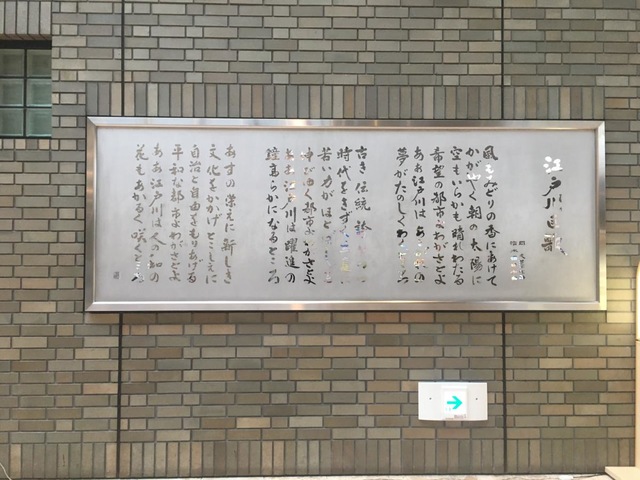 江戸川区歌
風もみどりの香にあけて
かがやく朝の太陽に
空もいらかも晴れわたる
希望の都市よわがさとよ
ああ江戸川は
夢がたのしくわくところ
古き伝統 誇
時代をきずく
若い力がほ
伸びゆく都市よわがさとよ
ああ江戸川は躍進の
鐘高らかになるところ
あすの栄えに新しき
文化をかかげとこしえに
自治と自由をもりあげる
平和な都市よわがさとよ
ああ江戸川は人の和の
花もあかるく咲くところ